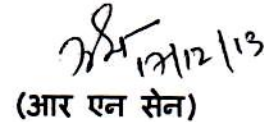 17/12/13
(आर एन सेन)